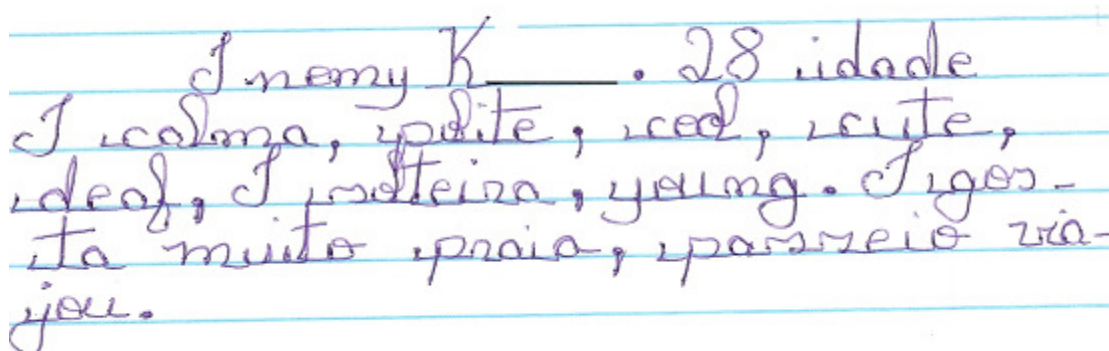 I nemy K____. 28 idade
I calma, polite, ced, cute,
deaf, I solteira, young. I gos-
ta muito praia, passeio via-
jou.